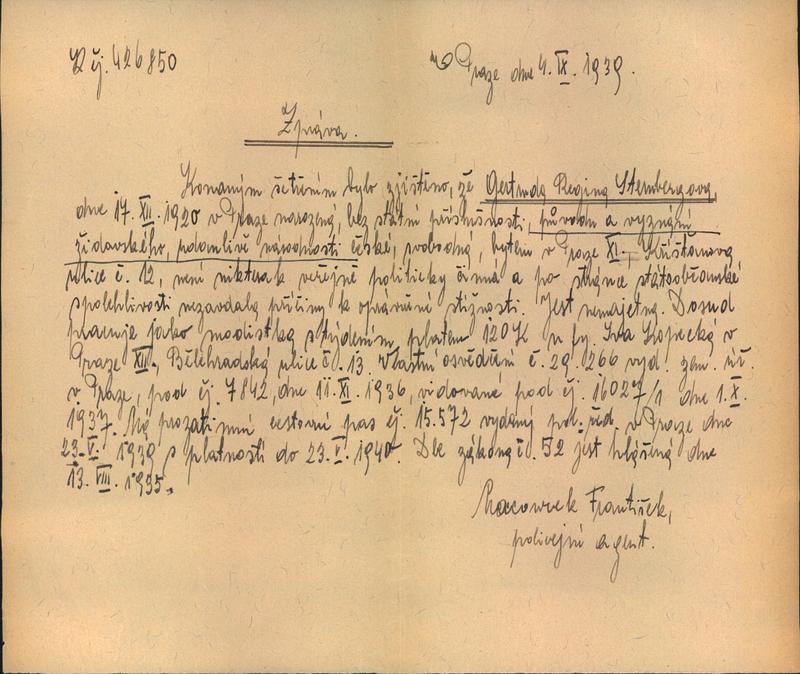 K čj. 426850
V Praze dne 4. IX. 1939.
Zpráva.
Konaným šetřením bylo zjištěno, že Gertruda Regina Sternbergova,
dne 17. XII. 1920 v Praze narozená, bez státní příslušnosti, původu a vyznání
židovského, údomlivé národnosti české, svobodná, bytem v Praze XI.
ulice č. 12, není nikterak veřejně politicky činná a po stránce státoobčanské
spolehlivosti nezavdala příčiny k oprávněné stížnosti. Jest nemajetná. Dosud
pracuje jako modistka s týdenním platem 120 K u fy. Iva Kopecká v
Praze XII., Bělehradská ulice č. 13. Vlastní osvědčení č. 29.266 vyd. zem. úř.
v Praze, pod čj. 7842, dne 11. XI. 1936, vidované pod čj. 16027/1 dne 1. X.
1937. Má prozatimní cestovní pas čj. 15.572 vydaný pol. řed. v Praze dne
23. V. 1939 s platností do 23. V. 1940. Dle zákona č. 52 jest hlášena dne
13. VIII. 1935.
František,
policejní agent.